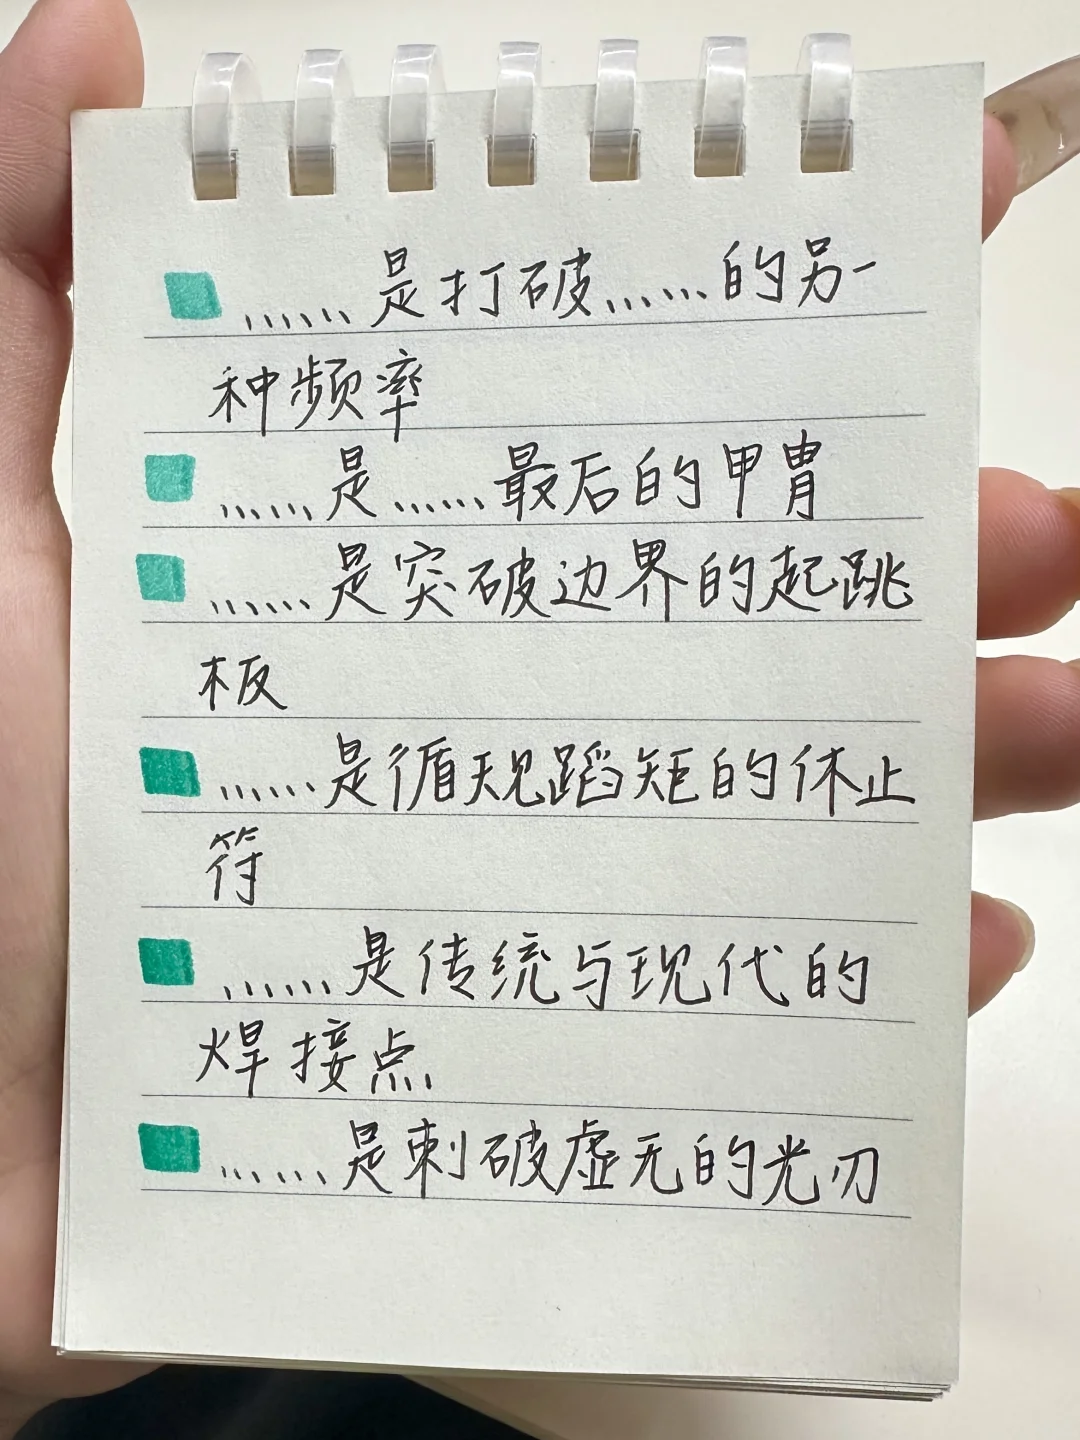 ……是打破……的另一
种频率
……是……最后的甲胄
……是突破边界的起跳
板
……是循规蹈矩的休止
符
……是传统与现代的
焊接点
……是刺破虚无的光刃